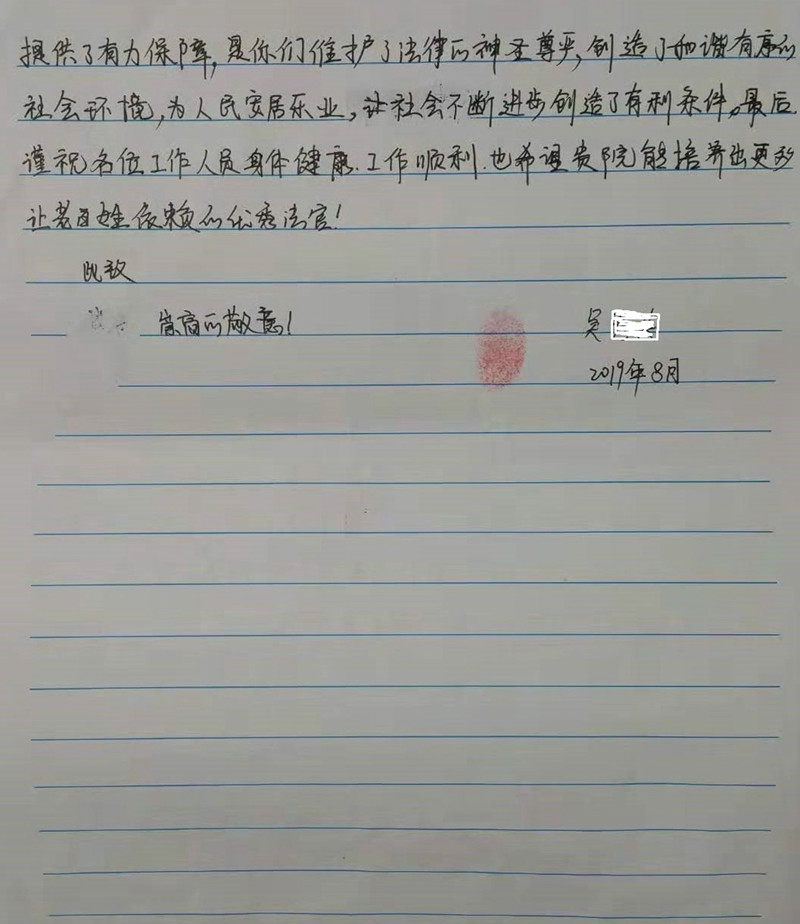 提供了有力保障,是你们维护了法律的神圣尊严,创造了和谐有序的
社会环境,为人民安居乐业,让社会不断进步创造了有利条件。最后
谨祝各位工作人员身体健康.工作顺利.也希望贵院能培养出更多
让老百姓依赖的优秀法官!
此致
崇高的敬意!
吴
2019年8月